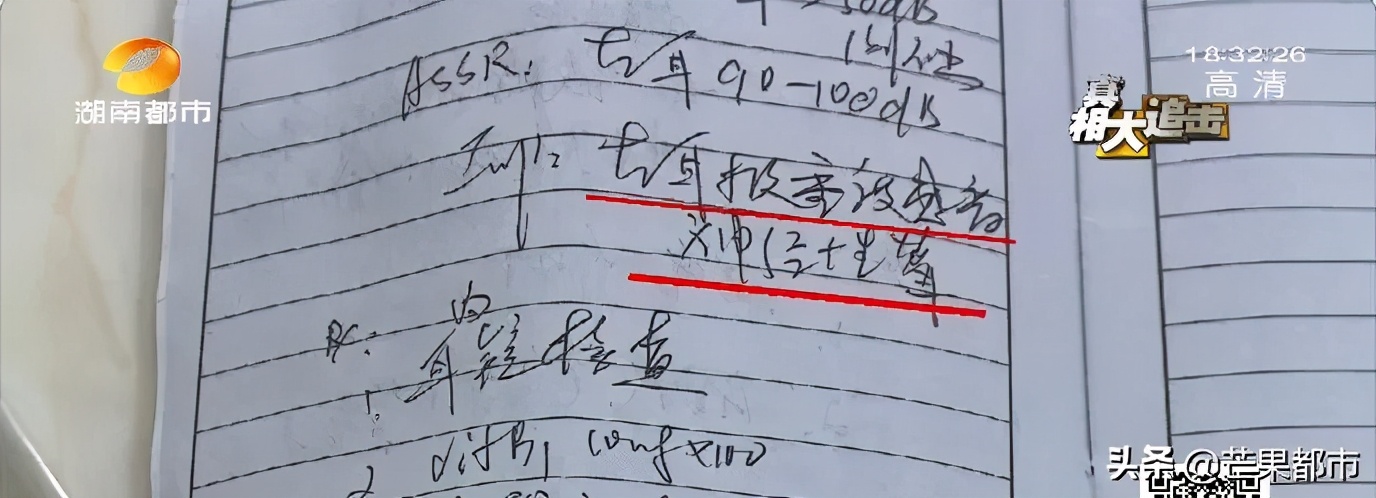 湖南都市
18:32:26
高清
真相大追击
50dB
ASSR: 左耳 90-100dB
Imp: 左耳极重度感音
神经性聋
Rx:
1. 内耳镜检查
2. VitB1 10mg×100
头条 @芒果都市